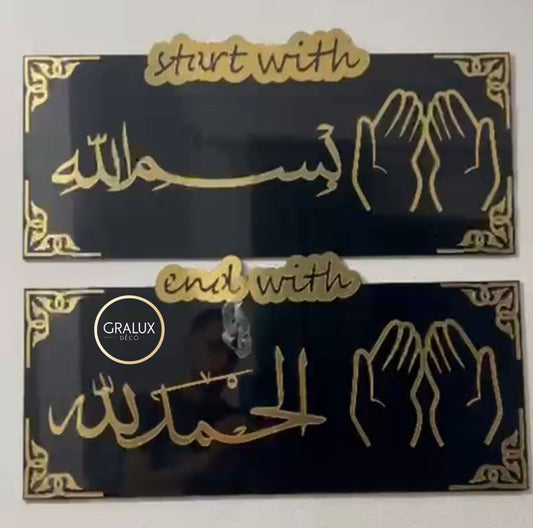 start with
بسم الله
end with
GRALUX
DÉCO
الحمد لله